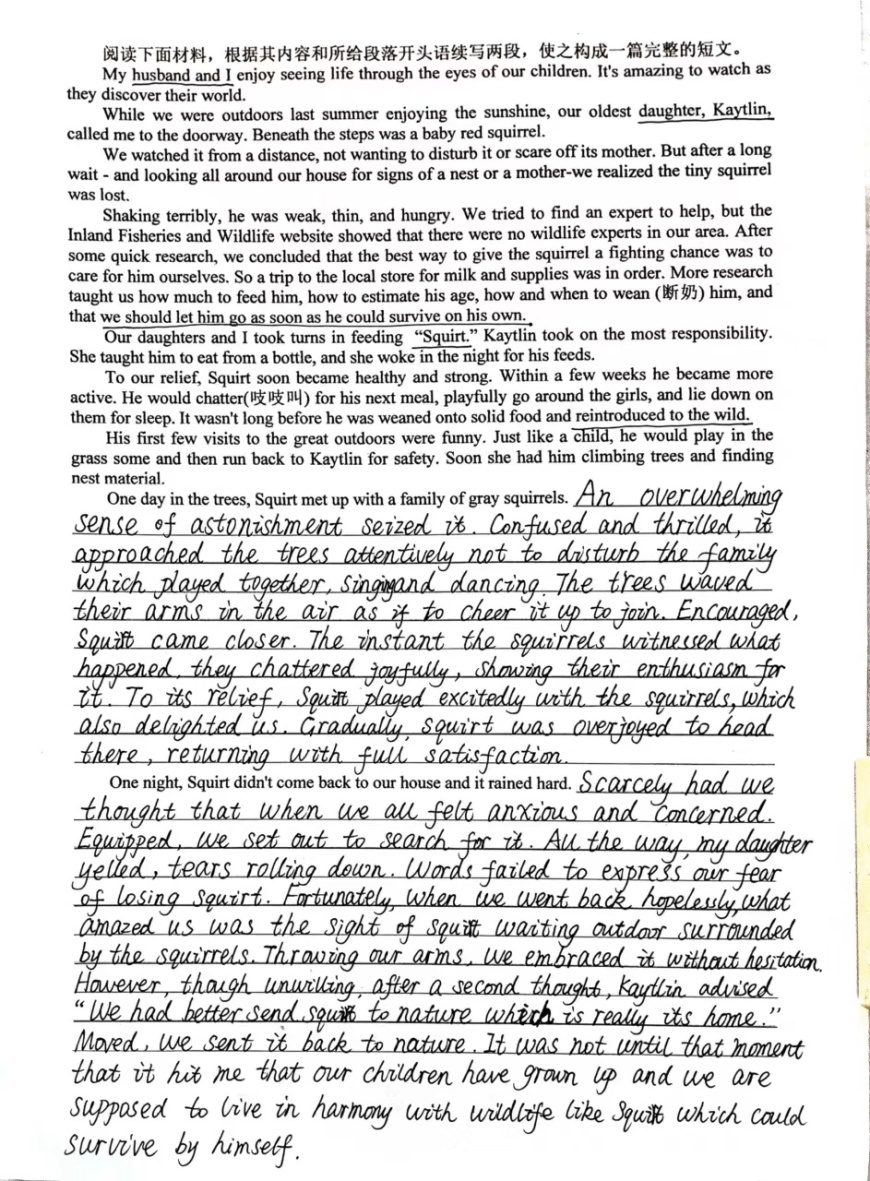 阅读下面材料，根据其内容和所给段落开头语续写两段，使之构成一篇完整的短文。
My husband and I enjoy seeing life through the eyes of our children. It's amazing to watch as
they discover their world.
While we were outdoors last summer enjoying the sunshine, our oldest daughter, Kaytlin,
called me to the doorway. Beneath the steps was a baby red squirrel.
We watched it from a distance, not wanting to disturb it or scare off its mother. But after a long
wait - and looking all around our house for signs of a nest or a mother-we realized the tiny squirrel
was lost.
Shaking terribly, he was weak, thin, and hungry. We tried to find an expert to help, but the
Inland Fisheries and Wildlife website showed that there were no wildlife experts in our area. After
some quick research, we concluded that the best way to give the squirrel a fighting chance was to
care for him ourselves. So a trip to the local store for milk and supplies was in order. More research
taught us how much to feed him, how to estimate his age, how and when to wean (断奶) him, and
that we should let him go as soon as he could survive on his own.
Our daughters and I took turns in feeding “Squirt.” Kaytlin took on the most responsibility.
She taught him to eat from a bottle, and she woke in the night for his feeds.
To our relief, Squirt soon became healthy and strong. Within a few weeks he became more
active. He would chatter(吱吱叫) for his next meal, playfully go around the girls, and lie down on
them for sleep. It wasn't long before he was weaned onto solid food and reintroduced to the wild.
His first few visits to the great outdoors were funny. Just like a child, he would play in the
grass some and then run back to Kaytlin for safety. Soon she had him climbing trees and finding
nest material.
One day in the trees, Squirt met up with a family of gray squirrels. An overwhelming
sense of astonishment seized it. Confused and thrilled, it
approached the trees attentively not to disturb the family
which played together, singing and dancing. The trees waved
their arms in the air as if to cheer it up to join. Encouraged,
Squirt came closer. The instant the squirrels witnessed what
happened, they chattered joyfully, showing their enthusiasm for
it. To its relief, Squirt played excitedly with the squirrels, which
also delighted us. Gradually, squirt was overjoyed to head
there, returning with full satisfaction.
One night, Squirt didn't come back to our house and it rained hard. Scarcely had we
thought that when we all felt anxious and concerned.
Equipped, we set out to search for it. All the way, my daughter
yelled, tears rolling down. Words failed to express our fear
of losing squirt. Fortunately, when we went back hopelessly, what
amazed us was the sight of squirt waiting outdoor surrounded
by the squirrels. Throwing our arms, we embraced it without hesitation.
However, though unwilling, after a second thought, Kaytlin advised
“We had better send squirt to nature which is really its home.”
Moved, we sent it back to nature. It was not until that moment
that it hit me that our children have grown up and we are
supposed to live in harmony with wildlife like Squirt which could
survive by himself.